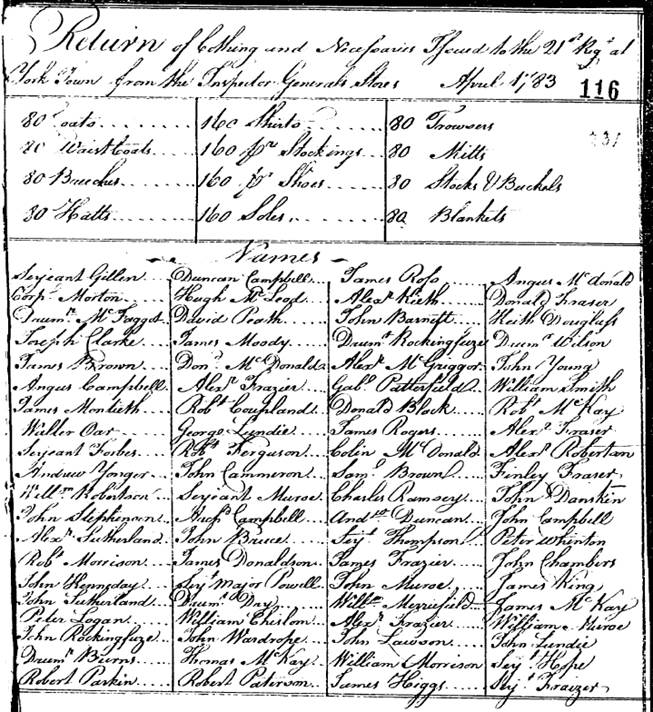 Return of Cothing and Necessaries Issued to the 21st Regt at
York Town from the Inspector Generals Stores April 1783
116
80 Coats 160 Shirts 80 Trowsers
80 WaistCoats 160 pr Stockings 80 Mitts
80 Breeches 160 pr Shoes 80 Stocks & Buckels
80 Hatts 160 Soles 80 Blankets
Names
Serjeant Gillen Duncan Campbell James Ross Angus McDonald
Corpl Morton Hugh McLeod Alexr Kieth Donald Fraser
Drumr McFaggot David Peath John Barnett Keith Douglass
Joseph Clarke James Moody Drumr Rockingfuze Drumr Wilson
James Brown Dond McDonald Alexr McGriggor John Young
Angus Campbell Alexr Frazier Gabl Patterfield William Smith
James Montieth Robt Coupland Donald Black Robt McKay
Walter Oar George Lyndie James Rogers Alexr Fraser
Serjeant Forbes Robt Ferguson Colin McDonald Alexr Robertson
Andrew Yonger John Cammeron Saml Brown Finley Fraser
Willm Robertson Serjeant Munroe Charles Ramsey John Danskin
John Stephenson Archd Campbell Andrw Duncan John Campbell
Alexr Sutherland John Bruce Serjt Thompson Peter Whinton
Robt Morrison James Donaldson James Frazier John Chambers
John Kenneday Serjt Major Powell John Munroe James King
John Sutherland Drumr Day Willm Merriefield James McKay
Peter Logan William Chislom Alexr Frazier William Munroe
John Rockingfuze John Wardrope John Lawson John Lundie
Drumr Burns Thomas McKay William Morrison Serjt Hope
Robert Parkin Robert Paterson James Higgs Serjt Fraizer